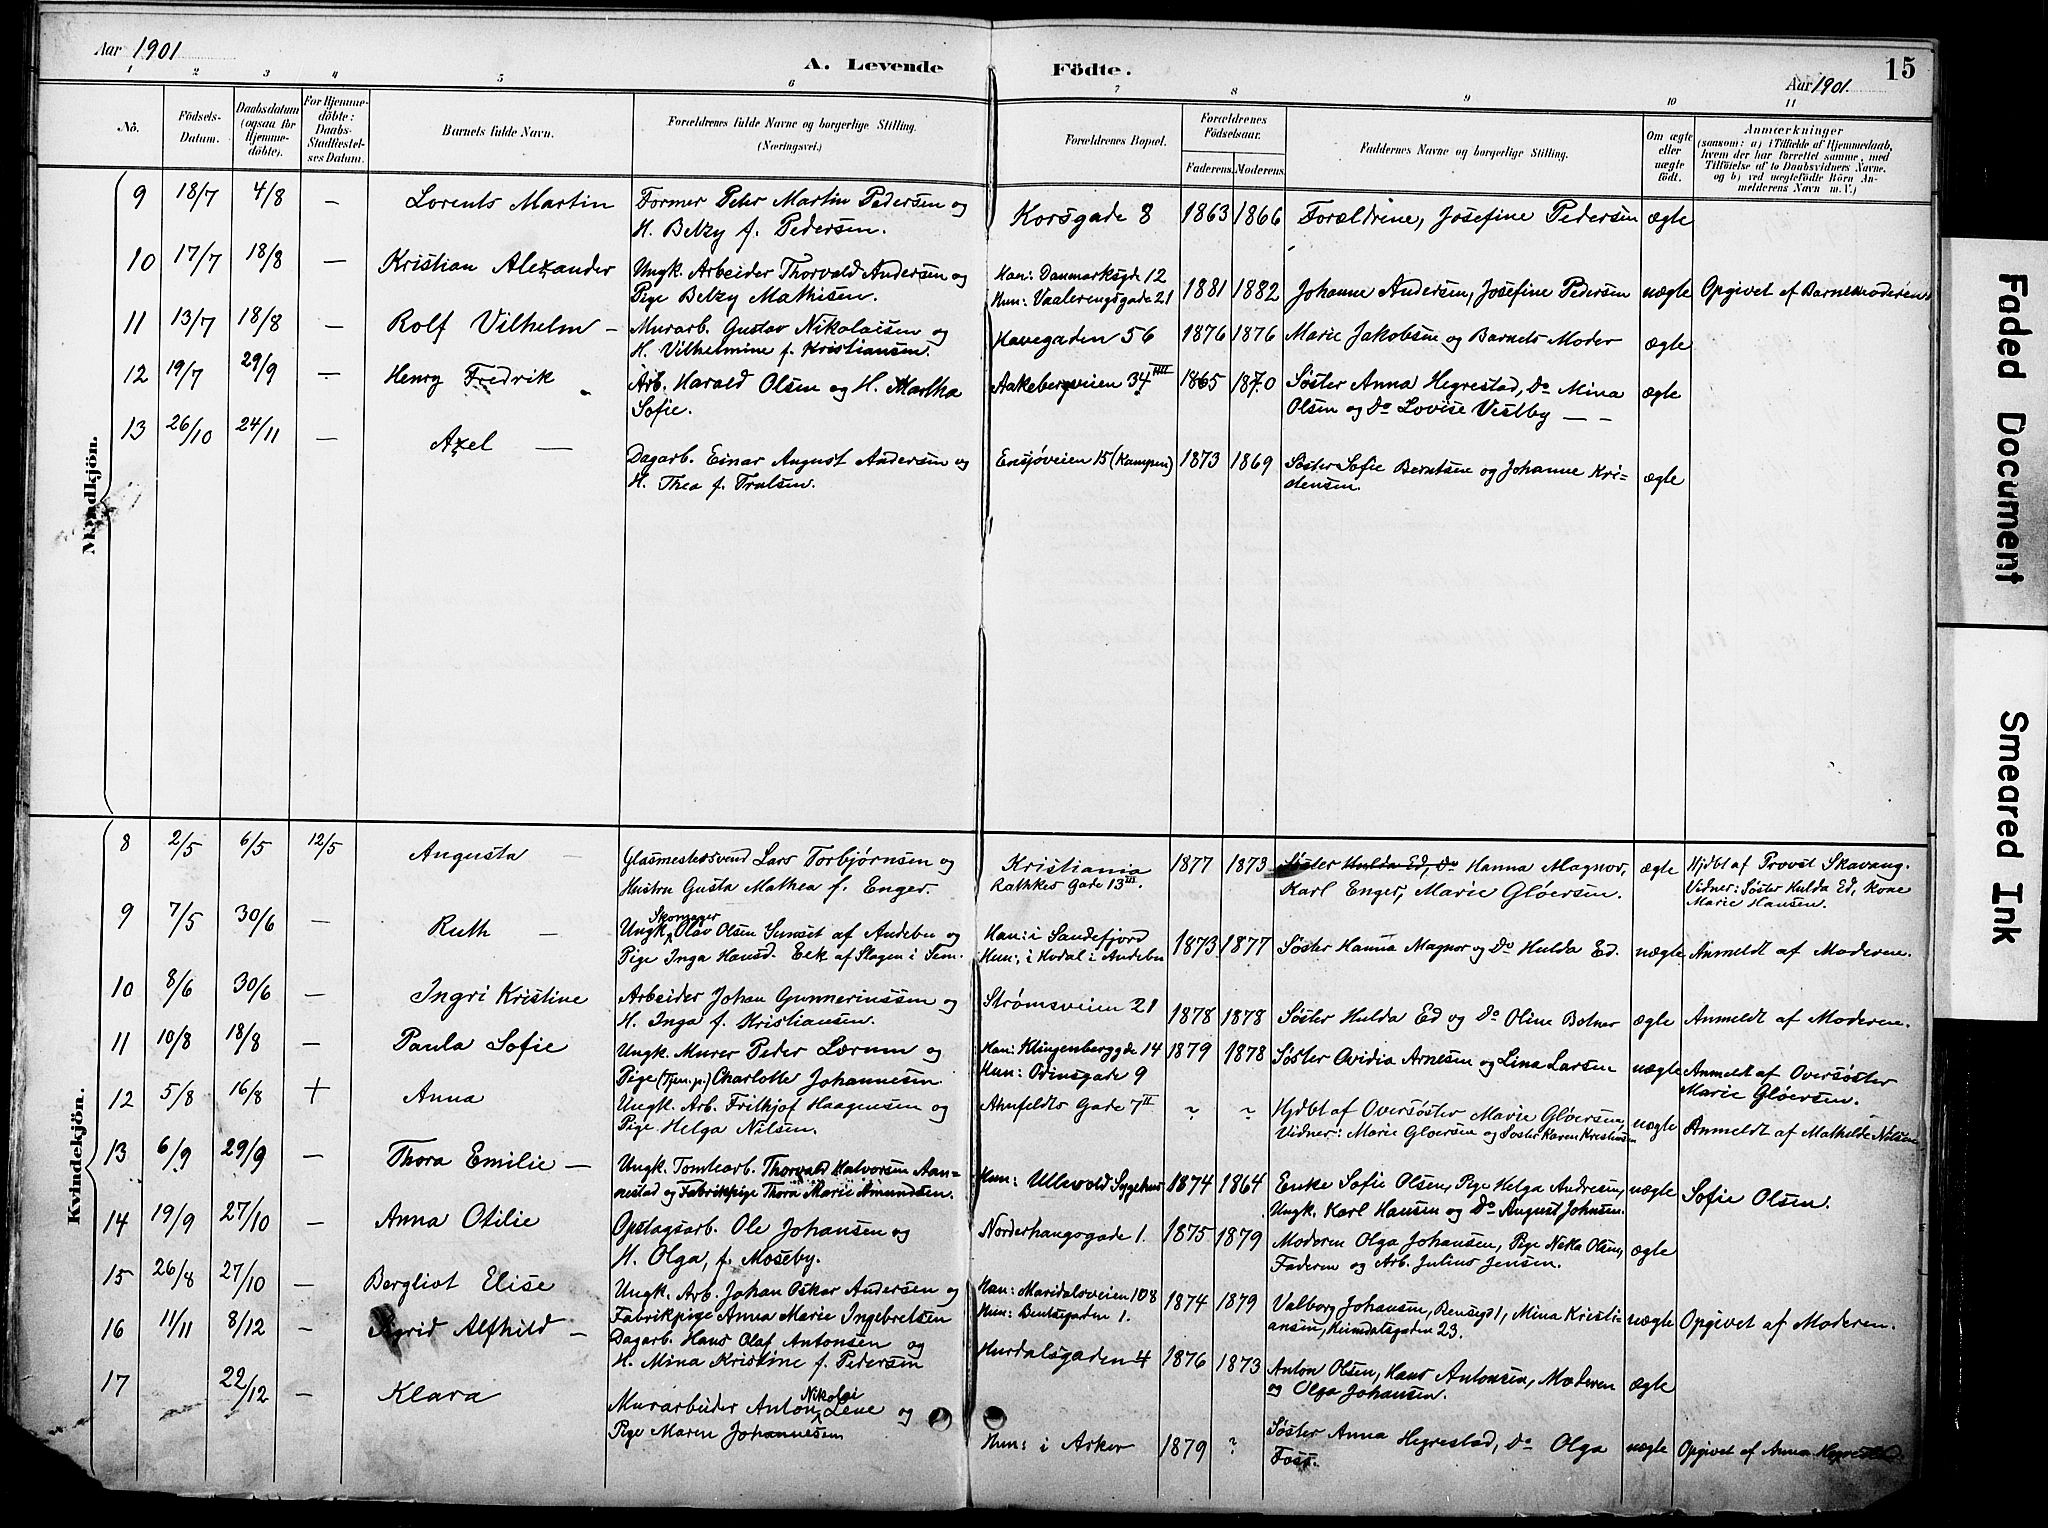 Aar 1901
A. Levende Födte.
Aar 1901.
15
1 2 3 4 5 6 7 8 9 10 11
No.
Födsels-Datum.
Daabsdatum (ogsaa for Hjemmedöbte).
For Hjemmedöbte: Daabs-Stadfestelses Datum.
Barnets fulde Navn.
Forældrenes fulde Navne og borgerlige Stilling. (Næringsvei.)
Forældrenes Bopæl.
Forældrenes Födselsaar.
Faderens. Moderens.
Faddernes Navne og borgerlige Stilling.
Om ægte eller uægte födt.
Anmærkninger
(saasom: a) i Tilfælde af Hjemmedaab, hvem der har forrettet samme, med Tilföielse af to Daabsvidners Navne, og b) ved uægtefödte Börn Anmelderens Navn m. V.)
Mandkjön.
9 18/7 4/8 — Lorents Martin
Former Peter Martin Pedersen og
H. Betzy f. Pedersen.
Korsgade 8 1863 1866 Forældrene, Josefine Pedersen ægte
10 17/7 18/8 — Kristian Alexander
Ungk. Arbeider Thorvald Andersen og
Pige Betzy Mathisen.
Han: Danmarksgde 12
Hun: Vaalerengsgade 21
1881 1882 Johanne Andersen, Josefine Pedersen uægte Opgivet af Barnemoderen.
11 13/7 18/8 — Rolf Vilhelm —
Murarb. Gustav Nikolaisen og
H. Vilhelmine f. Kristiansen.
Havegaden 56 1876 1876 Marie Jakobsen og Barnets Moder ægte
12 19/7 29/9 — Henry Fredrik
Arb. Harald Olsen og H. Martha
Sofie.
Aakebergveien 34 IIII 1865 1870 Søster Anna Hegrestad, Do Mina
Olsen og Do Lovise Vestby — —
ægte
13 26/10 24/11 — Axel —
Dagarb. Einar August Andersen og
H. Thea f. Trulsen.
Ensjøveien 15 (Kampen) 1873 1869 Søster Sofie Berntsen og Johanne Kri=
stensen.
ægte
Kvindekjön.
8 2/5 6/5 12/5 Augusta —
Glasmestersvend Lars Torbjørnsen og
Hustru Gusta Mathea f. Enger.
Kristiania
Rathkes Gade 13 III.
1877 1873 Søster Hulda Ed, Do Hanna Magnor,
Karl Enger, Marie Gløersen.
ægte Hjdbt af Provst Skavang.
Vidner: Søster Hulda Ed, Kone
Marie Hansen.
9 7/5 30/6 — Ruth —
Skomager
Ungk. Olav Olsen af Andebu og
Pige Inga Hansd. Eek af Slagen i Sem.
Han: i Sandefjord
Hun: i Hodal i Andebu
1873 1877 Søster Hanna Magnor og Do Hulda Ed. uægte Anmeldt af Moderen.
10 8/6 30/6 — Ingri Kristine
Arbeider Johan Gunnerinssen og
H. Inga f. Kristiansen.
Strømsveien 21 1878 1878 Søster Hulda Ed og Do Oline Bolner ægte Anmeldt af Moderen.
11 10/8 18/8 — Paula Sofie
Ungk. Murer Peder Lærum og
Pige (Tjen.p.) Charlotte Johannesen
Han: Klingenberggde 14
Hun: Odinsgade 9
1879 1878 Søster Ovidia Arnesen og Lina Larsen uægte Anmeldt af Oversøster
Marie Gløersen.
12 5/8 16/8 + Anna
Ungk. Arb. Frithjof Haagensen og
Pige Helga Nilsen.
Ahnfeldts Gade 7 II ~ ~ Hjdbt af Oversøster Marie Gløersen,
Vidner: Marie Gløersen og Søster Karen Kristiansen
uægte Anmeldt af Mathilde Nilsen
13 6/9 29/9 — Thora Emilie —
Ungk. Tomtearb. Thorvald Halvorsen Aan-
restad og Fabrikpige Thora Marie Amundsen.
Hun: Ullevold Sygehus 1874 1864 Enke Sofie Olsen, Pige Helga Andresen,
Ungk. Karl Hansen og Do August Johnsen.
uægte Sofie Olsen.
14 19/9 27/10 — Anna Otilie
Opslagsarb. Ole Johansen og
H. Olga, f. Moseby.
Norderhaugsgade 1. 1875 1879 Moderen Olga Johansen, Pige Neka Olsen,
Faderen og Arb. Julius Jensen.
ægte
15 26/8 27/10 — Bergliot Elise
Ungk. Arb. Johan Oskar Andersen og
Fabrikpige Anna Marie Ingebretsen
Han: Maridalsveien 108
Hun: Bentsegaden 1.
1874 1879 Valborg Johansen, Bensegd 1, Mina Kristi-
ansen, Heimdalsgaden 23.
uægte Opgivet af Moderen.
16 11/11 8/12 — Sigrid Alfhild —
Dagarb. Hans Olaf Antonsen og
H. Mina Kristine f. Pedersen
Hurdalsgaden 4 1876 1873 Anton Olsen, Hans Antonsen, Moderen
og Olga Johansen.
ægte
17 22/12 — Klara
Murarbeider Anton Nikolai Lene og
Pige Maren Johannesen
Hun: i Aker 1879 ? Søster Anna Hegrestad, Do Olga
Foss.
uægte Opgivet af Anna Hegrestad.
Faded Document
Smeared Ink